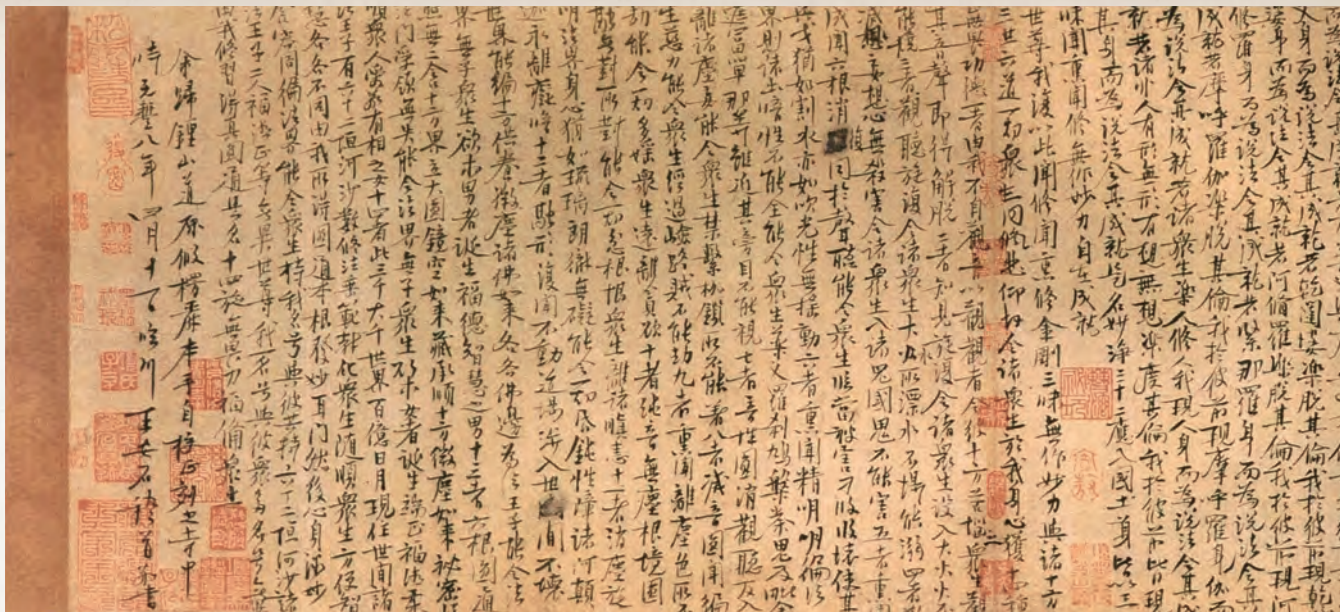 又身而為說法令其成就若乾闥婆樂脫其倫我於彼前現乾
闥婆身而為說法令其成就若阿脩羅樂脫其倫我於彼前現阿
脩羅身而為說法令其成就若緊那羅身而為說法令其
成就若摩呼羅伽樂脫其倫我於彼前現摩呼羅身伽
為說法令其成就若諸眾生樂人修人我現人身而為說法令其
就若諸非人有形無形有想無想樂度其倫我於彼前皆現
其身而為說法令其成就是名妙淨三十二應入國土身皆以三
昧聞熏聞修無作妙力自在成就
世尊我復以此聞修聞熏修金剛三昧無作妙力與諸十方
三世六道一切眾生同悲仰故令諸眾生於我身心獲十四種
無畏功德一者由我不自觀音以觀觀者令彼十方苦惱眾生觀
其音聲即得解脫二者知見旋復令諸眾生設入大火火不
能燒三者觀聽旋復令諸眾生大水所漂水不能溺四者斷
滅妄想心無殺害令諸眾生入諸鬼國鬼不能害五者熏聞
成聞六根消復同於聲聽能令眾生臨當被害刀段段壞使其
兵戈猶如割水亦如吹光性無搖動六者熏聞精明明徧法
界則諸幽暗性不能全能令眾生藥叉羅剎鳩槃茶鬼及毗舍
遮富單那等雖近其旁目不能視七者音性圓消觀聽反入
離諸塵妄能令眾生禁繫枷鎖所不能著八者滅音圓聞徧
生慈力能令眾生經過嶮路賊不能劫九者熏聞離塵色所不
劫能令一切多婬眾生遠離貪欲十者純音無塵根境圓
融無對所對能令一切忿恨眾生離諸瞋恚十一者消塵旋
明法界身心猶如琉璃朗徹無礙能令一切昏鈍性障諸阿顛
迦永離癡暗十二者融形復聞不動道場涉入世間不壞
世界能徧十方供養微塵諸佛如來各各佛邊為法王子能令法
界無子眾生欲求男者誕生福德智慧之男十三者六根圓通
明照無二含十方界立大圓鏡空如來藏承順十方微塵如來秘密法
門受領無失能令法界無子眾生欲求女者誕生端正福德柔
順眾人愛敬有相之女十四者此三千大千世界百億日月現住世間諸
法王子有六十二恒河沙數修法垂範教化眾生隨順眾生方便智
慧各各不同由我所得圓通本根發妙耳門然後身心微妙
含容周徧法界能令眾生持我名号與彼共持六十二恒河沙諸
法王子二人福德正等無異世尊我一名号與彼眾多名号無異
由我修習得真圓通是名十四施無畏力福備眾生
余歸鍾山道原假楞嚴本手自校正刻之寺中
時元豐八年四月十一日臨川王安石稽首敬書